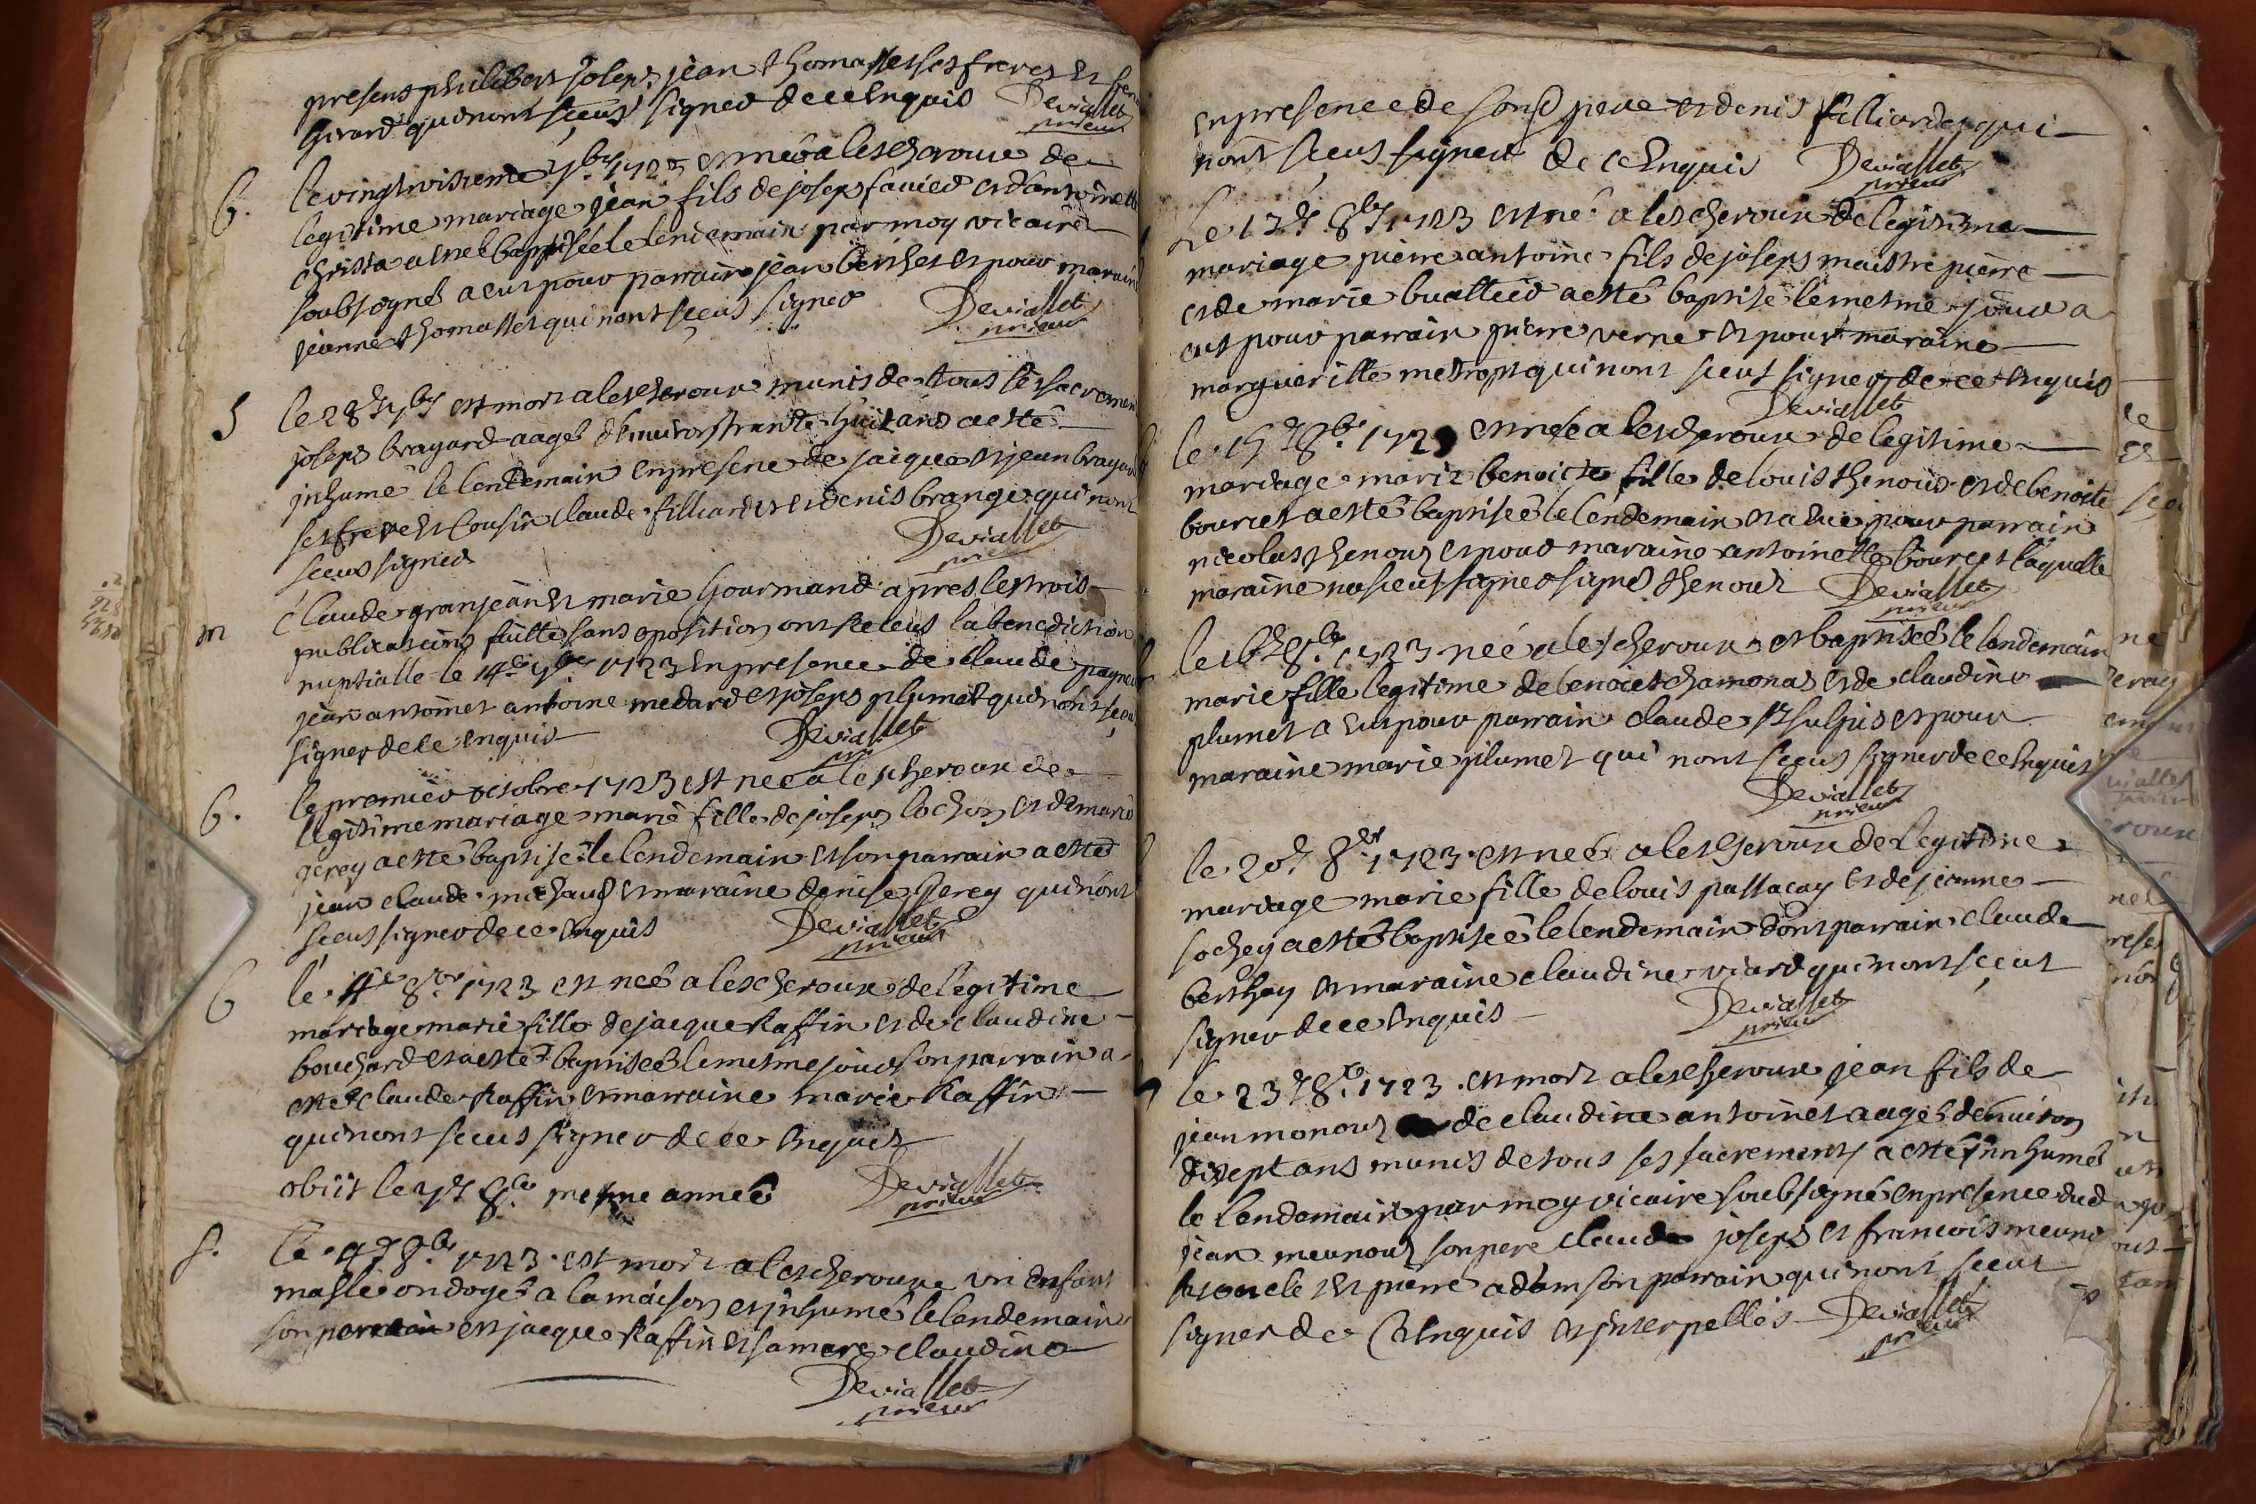 presens philibert joseph jean thomasset ses freres et
girard qui nont sceus signer de ce enquis Deviallet
prieur
b. le vingtroisieme 7bre 1723 est né a lescheroux de
legitime mariage jean fils de joseph favier et dantoinette
christia a esté baptisé le lendemain par moy vicaire
soubsogné a eut pour parrain jean berthet et pour maraine
jeanne thomasset qui nont sceus signer Deviallet
prieur
S le 28e 7bre est mort a lescheroux munis de tous les sacremen
joseph brayard aagé denviron trante huit ans a esté
inhumé le lendemain en presence de jacque et jean brayard
ses frere et cousin claude filliardet et denis brange qui nont
sceus signer Deviallet
m Claude granjean et marie gourmand apres les trois
publications faitte sans oposition ont receus la benediction
nuptialle le 14e 7bre 1723 en presence de claude pagneu
jean antoinet antoine medard et joseph plumet qui nont sceu
signer de ce enquis Deviallet
b. le premier octobre 1723 est nee a lescheroux de
legitime mariage marie fille de joseph lochon et de marie
gerey a esté baptisé le lendemain et son parrain a esté
jean claude michaud et maraine denise gerey qui nont
sceus signer de ce enquis Deviallet
prieur
b le 4e 8bre 1723 est neé a lescheroux de legitime
mariage marie fille de jacque Raffin et de claudine
bouchard et a esté baptiseé le mesme jour son parrain a
esté claude Raffin et marraine marie Raffin
qui nont sceus signer de ce enquis
obiit le 7e 8bre mesme année Deviallet
prieur
s. le 4e 8bre 1723 est mort a lescheroux un enfant
masle ondoyé a la maison et inhumé le lendemain
son pere est jacque Raffin et sa mere claudine
Deviallet
prieur
en presence de son pere et denis filliardet qui
nont sceus signer de ce enquis Deviallet
prieur
Le 12e 8bre 1723 est né a lescheroux de legitime
mariage pierre antoine fils de joseph maistre pierre
et de marie buattier a esté baptisé le mesme jour a
eut pour parrain pierre verne et pour maraine
margueritte qui nont sceus signer de ce enquis
Deviallet
le 15e 8bre 1723 est neé a lescheroux de legitime
mariage marie benoicte fille de louis thenoud et de benoite
bourcet a esté baptiseé le lendemain et a eue pour parrain
nicolas thenoud et pour maraine antoinette bourcet laquelle
maraine na sceus signer signé thenoud Deviallet
prieur
le 16e 8bre 1723 neé a lescheroux et baptiseé le lendemain
marie fille legitime de benoict chamonal et de claudine
plumet a eut pour parrain claude st sulpis et pour
maraine marie plumet qui nont sceus signer de ce enquis
Deviallet
prieur
le 20e 8bre 1723 est neé a lescheroux de legitime
mariage marie fille de louis passacay et de jeanne
sochey a esté baptiseé le lendemain dont parrain claude
berthey et maraine claudine viard qui nont sceut
signer de ce enquis Deviallet
prieur
le 23e 8bre 1723 est mort a lescheroux jean fils de
jean monoud de claudine antoinet aagé denviron
disept ans munis de tous ses sacrements a esté inhumé
le lendemain par moy vicaire soubsigné en presence dud
jean meunoud son pere claude joseph et francois meuno
ses oncle et pierre adam son parrain qui nont sceut
signer de ce enquis et interpellés Deviallet
prieur